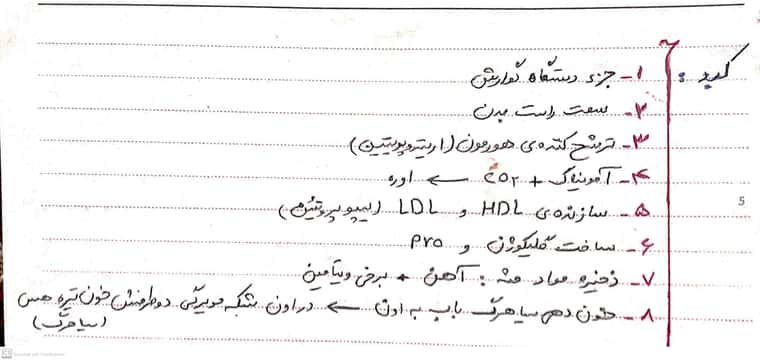 کبد :
۱- جزء دستگاه گوارش
۲- سمت راست بدن
۳- ترشح کننده‌ی هورمون (اریتروپویتین)
۴- آمونیاک + CO۲ ← اوره
۵- سازنده‌ی HDL و LDL (لیپوپروتئین)
۶- ساخت گلیکوژن و Pro
۷- ذخیره مواد مثه : آهن + برخی ویتامین
۸- خون دهی سیاهرگ باب به اون ← در اون شبکه مویرگی دو طرفش خون تیره هس
(سیاهرگ)
5